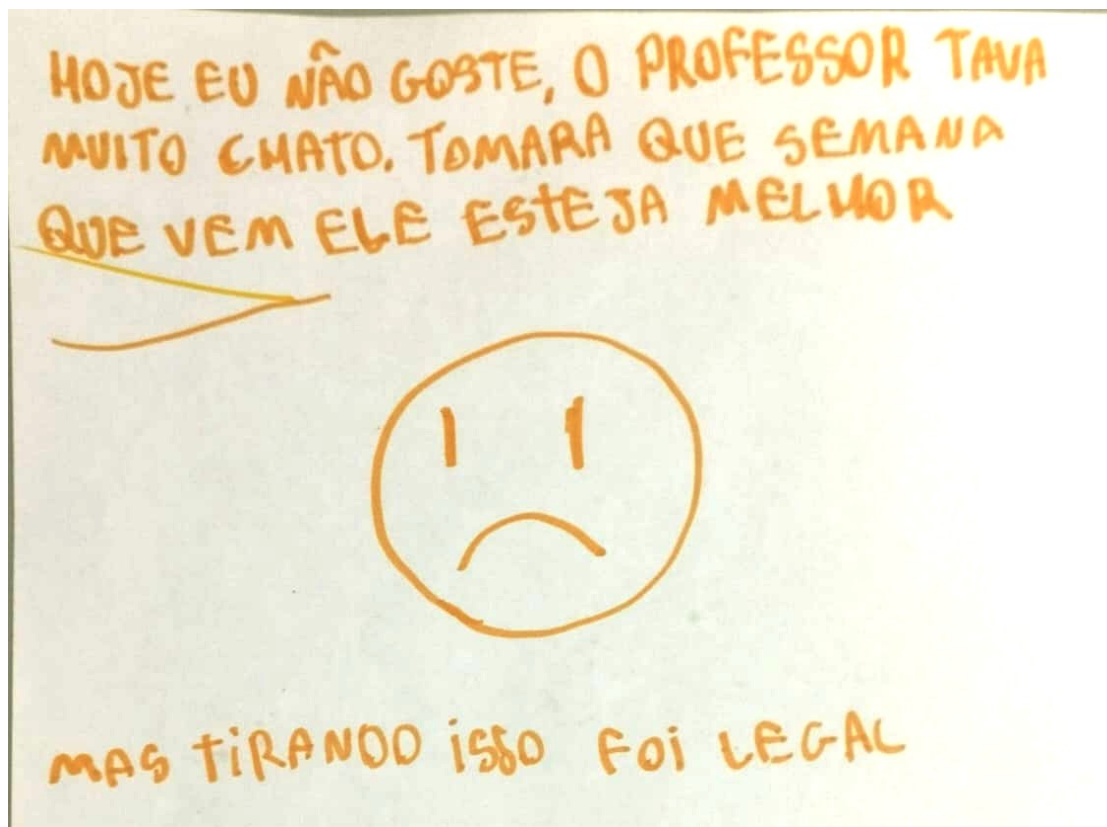 HOJE EU NÃO GOSTE, O PROFESSOR TAVA
MUITO CHATO. TOMARA QUE SEMANA
QUE VEM ELE ESTEJA MELHOR
MAS TIRANDO ISSO FOI LEGAL